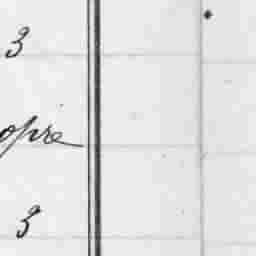 3
opie
3